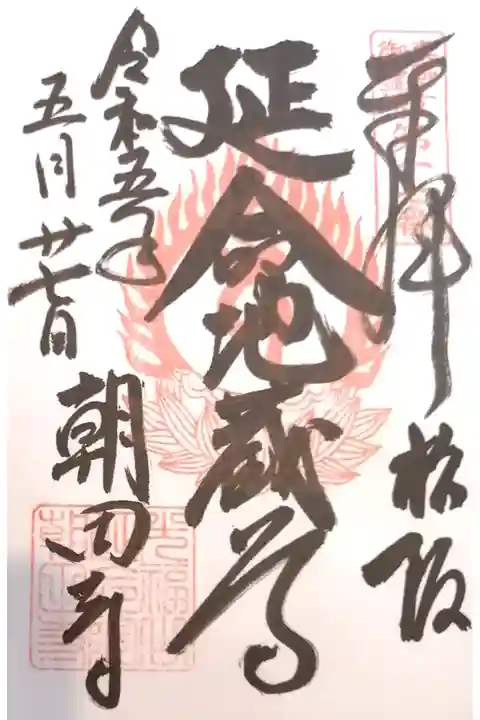 奉拝
松阪
延命地蔵尊
令和五年
五月廿七日
朝田寺